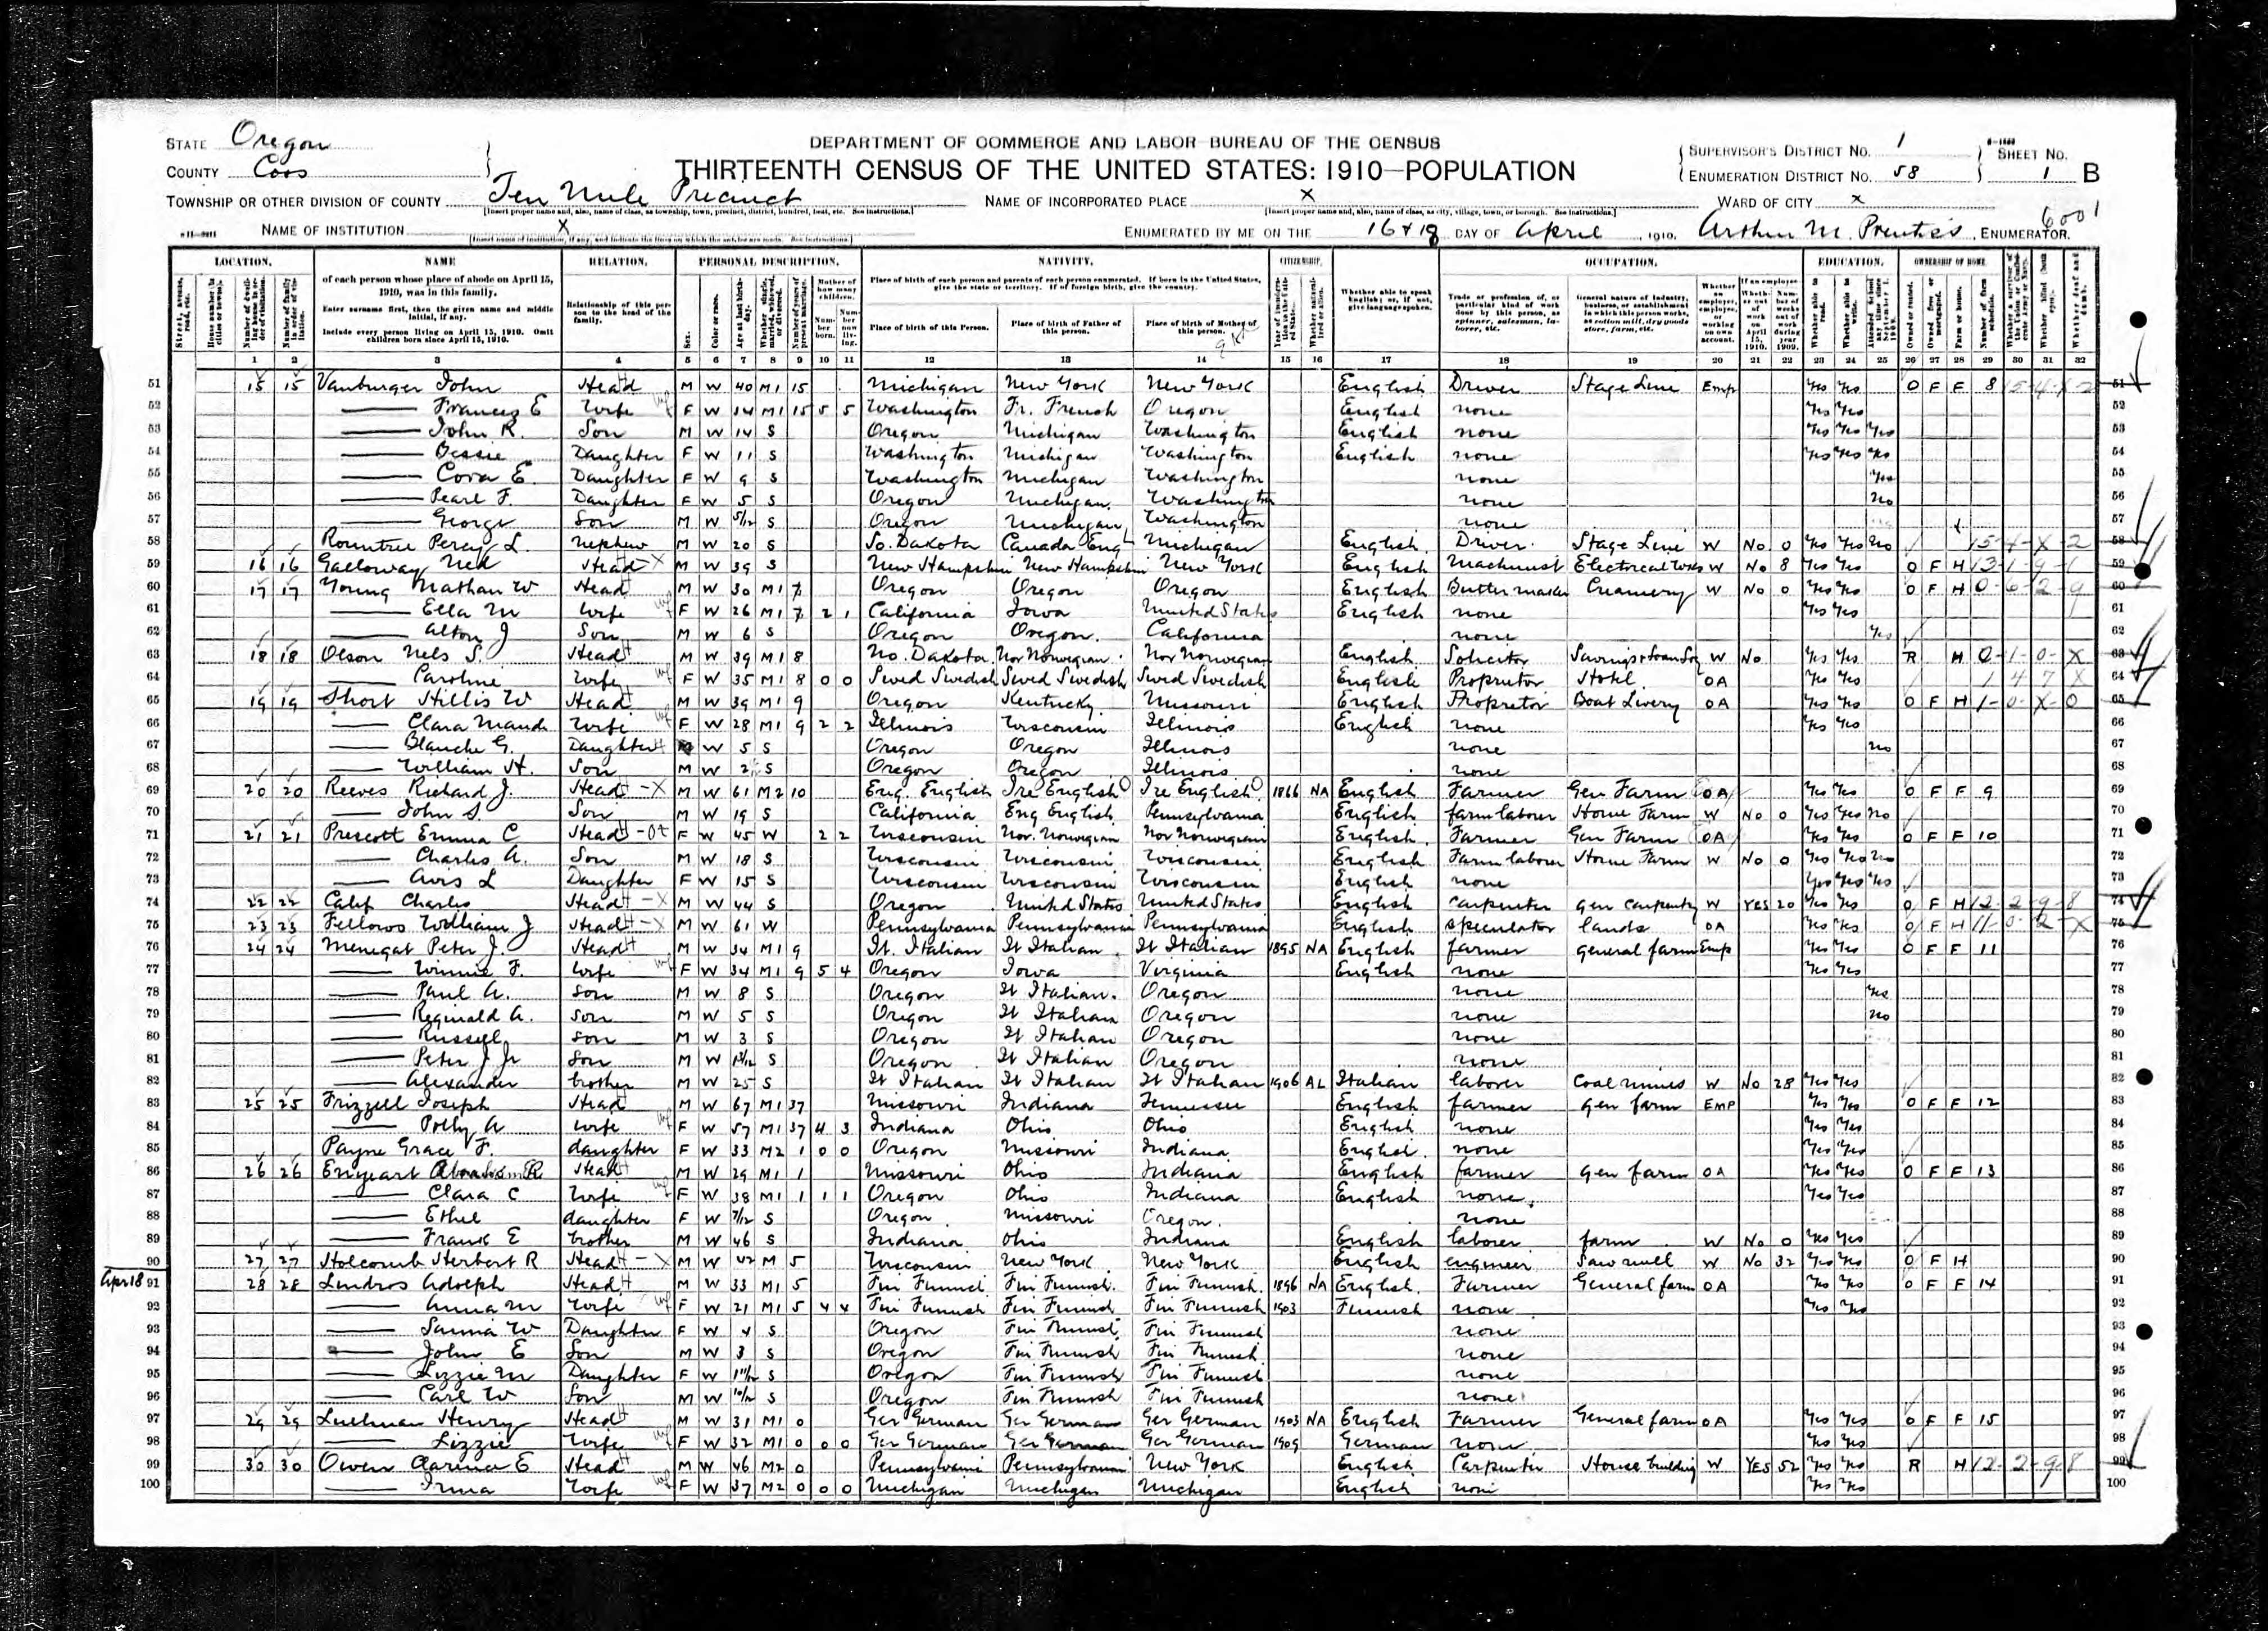 DEPARTMENT OF COMMERCE AND LABOR—BUREAU OF THE CENSUS
THIRTEENTH CENSUS OF THE UNITED STATES: 1910—POPULATION
STATE Oregon
COUNTY Coos
TOWNSHIP OR OTHER DIVISION OF COUNTY Ten Mile Precinct
NAME OF INSTITUTION X
NAME OF INCORPORATED PLACE X
ENUMERATED BY ME ON THE 16 & 18 DAY OF April, 1910. Arthur M. Prentiss, ENUMERATOR.
SUPERVISOR'S DISTRICT No. 1
ENUMERATION DISTRICT No. 58
SHEET No. 1 B
WARD OF CITY X
LOCATION. NAME RELATION. PERSONAL DESCRIPTION. NATIVITY. CITIZENSHIP. OCCUPATION. EDUCATION. OWNERSHIP OF HOME.
of each person whose place of abode on April 15, 1910, was in this family.
Enter surname first, then the given name and middle initial, if any.
Include every person living on April 15, 1910. Omit children born since April 15, 1910.
Relationship of this person to the head of the family.
Place of birth of each person and parents of each person enumerated. If born in the United States, give the state or territory. If of foreign birth, give the country.
Place of birth of this Person. Place of birth of Father of this person. Place of birth of Mother of this person.
Whether able to speak English; or, if not, give language spoken.
1 2 3 4 5 6 7 8 9 10 11 12 13 14 15 16 17 18 19 20 21 22 23 24 25 26 27 28 29 30 31 32
51 15 15 Vanburger John Head M W 40 M1 15 Michigan New York New York English Driver Stage Line Emp Yes Yes O F F 8
52 Frances E Wife F W 34 M1 15 5 5 Washington Fr. French Oregon English none Yes Yes
53 John R. Son M W 14 S Oregon Michigan Washington English none Yes Yes Yes
54 Bessie Daughter F W 11 S Washington Michigan Washington English none Yes Yes Yes
55 Cora E. Daughter F W 9 S Washington Michigan Washington none Yes
56 Pearl F. Daughter F W 5 S Oregon Michigan Washington none No
57 George Son M W 5/12 S Oregon Michigan Washington none
58 Rountree Percy L. Nephew M W 20 S So. Dakota Canada Eng Michigan English Driver Stage Line W No 0 Yes Yes No 15-4-X-2
59 16 16 Galloway Ned Head M W 39 S New Hampshire New Hampshire New York English Machinist Electrical Works W No 8 Yes Yes O F H
60 17 17 Young Nathan W Head M W 30 M1 7 Oregon Oregon Oregon English Butter maker Creamery W No 0 Yes Yes O F H 0-6-2-9
61 Ella M Wife F W 26 M1 7 2 1 California Iowa United States English none Yes Yes
62 Alton J Son M W 6 S Oregon Oregon California none Yes
63 18 18 Olson Nels S. Head M W 39 M1 8 No. Dakota Nor Norwegian Nor Norwegian English Solicitor Savings & Loan Soc W No Yes Yes R H 0-1-0-X
64 Caroline Wife F W 35 M1 8 0 0 Swed Swedish Swed Swedish Swed Swedish English Proprietor Hotel OA Yes Yes 1 4 7 X
65 19 19 Short Hillis W Head M W 39 M1 9 Oregon Kentucky Missouri English Proprietor Boat Livery OA Yes Yes O F H 1-0-X-0
66 Clara Maude Wife F W 28 M1 9 2 2 Illinois Wisconsin Illinois English none Yes Yes
67 Blanche G. Daughter W 5 S Oregon Oregon Illinois none No
68 William H. Son M W S Oregon Oregon Illinois none
69 20 20 Reeves Richard J. Head M W 61 M2 10 Eng. English Ire English Ire English 1866 NA English Farmer Gen Farm OA Yes Yes O F F 9
70 John S. Son M W 19 S California Eng English Pennsylvania English farm laborer Home Farm W No 0 Yes Yes No
71 21 21 Prescott Emma C Head F W 45 W 2 2 Wisconsin Nor. Norwegian Nor Norwegian English Farmer Gen Farm OA Yes Yes O F F 10
72 Charles A. Son M W 18 S Wisconsin Wisconsin Wisconsin English Farm laborer Home Farm W No 0 Yes Yes No
73 Avis L Daughter F W 15 S Wisconsin Wisconsin Wisconsin English none Yes Yes Yes
74 22 22 Calif Charles Head M W 44 S Oregon United States United States English Carpenter Gen Carpentry W YES 20 Yes Yes O F H 12-2-9-8
75 23 23 Fellows William J Head M W 61 W Pennsylvania Pennsylvania Pennsylvania English speculator lands OA Yes Yes O F H 11-0-2-X
76 24 24 Menegat Peter J. Head M W 34 M1 9 It. Italian It Italian It Italian 1895 NA English farmer general farm Emp Yes Yes O F F 11
77 Winnie F. Wife F W 34 M1 9 5 4 Oregon Iowa Virginia English none Yes Yes
78 Paul A. Son M W 8 S Oregon It Italian Oregon none Yes
79 Reginald A. Son M W 5 S Oregon It Italian Oregon none No
80 Russell Son M W 3 S Oregon It Italian Oregon none
81 Peter J Jr Son M W S Oregon It Italian Oregon none
82 Alexander brother M W 25 S It Italian It Italian It Italian 1906 AL Italian laborer Coal mines W No 28 Yes Yes
83 25 25 Frizzell Joseph Head M W 67 M1 37 Missouri Indiana Tennessee English farmer gen farm EMP Yes Yes O F F 12
84 Polly A Wife F W 57 M1 37 4 3 Indiana Ohio Ohio English none Yes Yes
85 Payne Grace F. daughter F W 33 M2 1 0 0 Oregon Missouri Indiana English none Yes Yes
86 26 26 Enyeart R Head M W 29 M1 1 Missouri Ohio Indiana English farmer gen farm OA Yes Yes O F F 13
87 Clara C Wife F W 38 M1 1 1 1 Oregon Ohio Indiana English none Yes Yes
88 Ethel daughter F W 7/12 S Oregon Missouri Oregon none
89 Frank E brother M W 46 S Indiana Ohio Indiana English laborer farm W No 0 Yes Yes
90 27 27 Holcomb Herbert R Head M W 42 M 5 Wisconsin New York New York English engineer Saw mill W No 32 Yes Yes O F H
Apr 18 91 28 28 Lindros Adolph Head M W 33 M1 5 Fin Finnish Fin Finnish Fin Finnish 1896 NA English Farmer General farm OA Yes Yes O F F 14
92 Anna M Wife F W 21 M1 5 4 4 Fin Finnish Fin Finnish Fin Finnish 1903 Finnish none Yes Yes
93 Saima W Daughter F W 4 S Oregon Fin Finnish Fin Finnish none
94 John E Son M W 3 S Oregon Fin Finnish Fin Finnish none
95 Lizzie M Daughter F W 1 11/12 S Oregon Fin Finnish Fin Finnish none
96 Carl W Son M W 10/12 S Oregon Fin Finnish Fin Finnish none
97 29 29 Luelman Henry Head M W 31 M1 0 Ger German Ger German Ger German 1903 NA English Farmer General farm OA Yes Yes O F F 15
98 Lizzie Wife F W 32 M1 0 0 0 Ger German Ger German Ger German 1909 German none Yes Yes
99 30 30 Owen Clarence E Head M W 46 M2 0 Pennsylvania Pennsylvania New York English Carpenter House building W YES 52 Yes Yes R H 12-2-9-8
100 Irma Wife F W 37 M2 0 0 0 Michigan Michigan Michigan English none Yes Yes